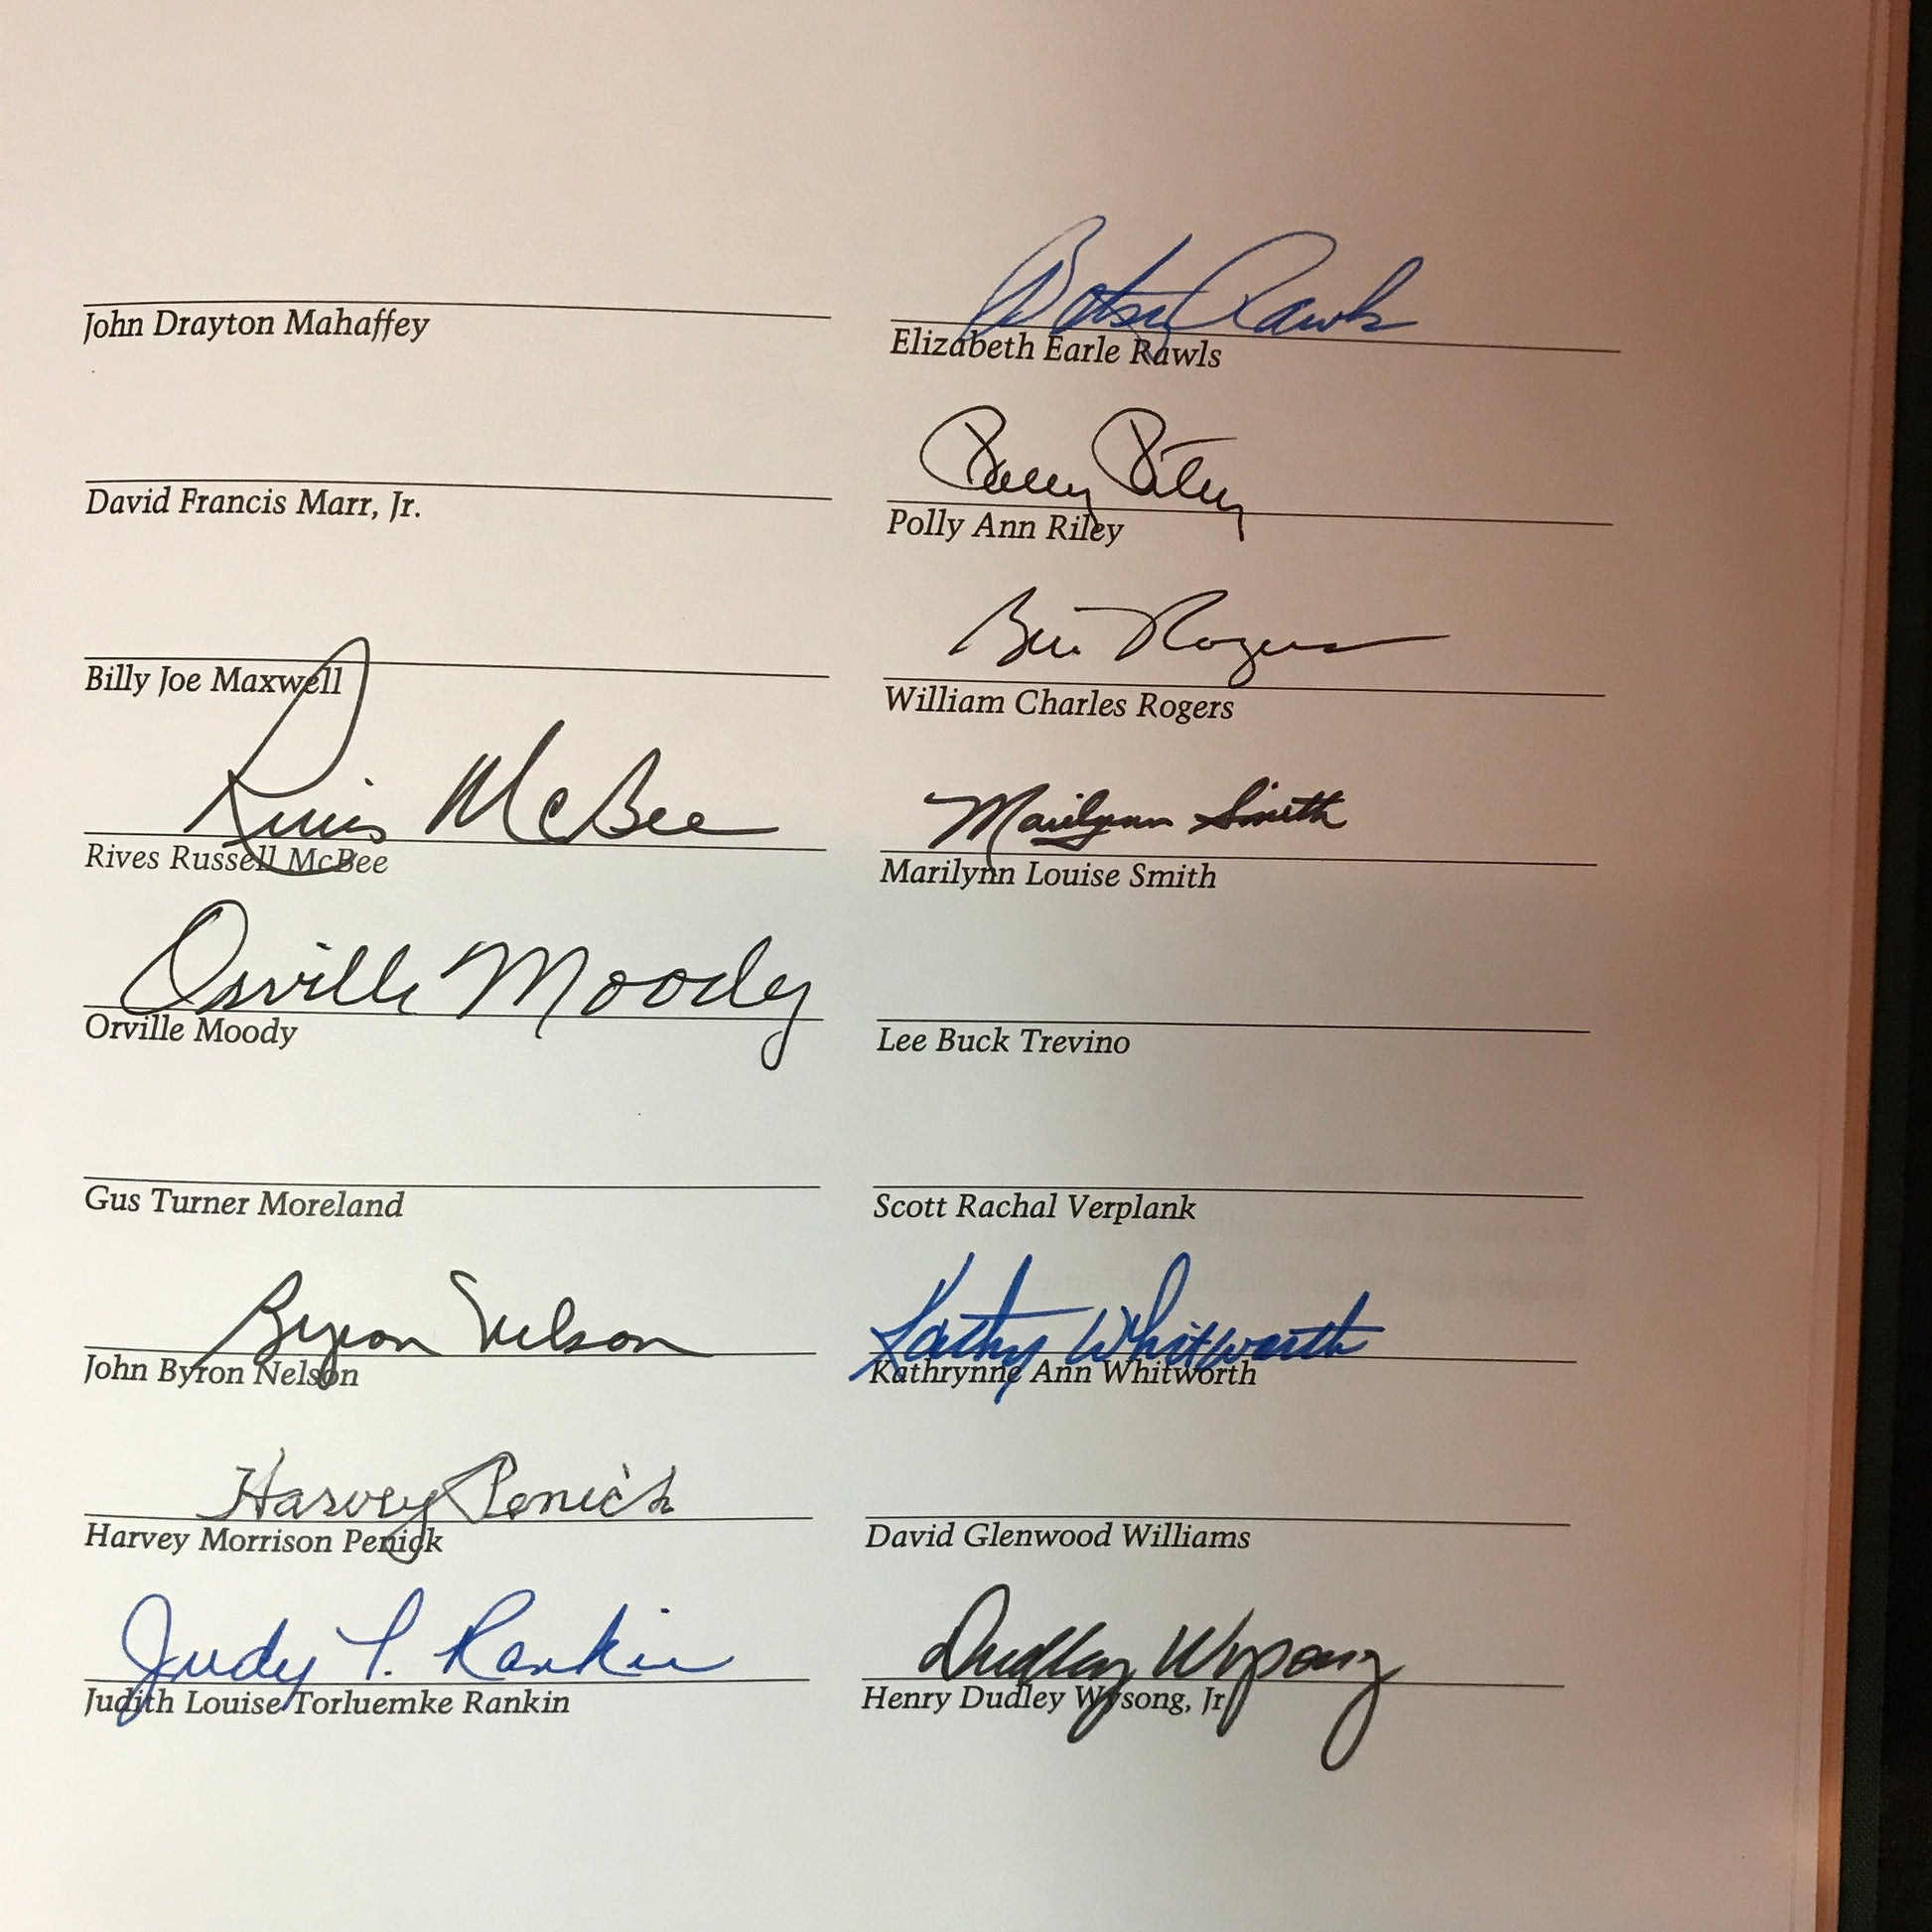 John Drayton Mahaffey
David Francis Marr, Jr.
Billy Joe Maxwell
Rives McBee
Rives Russell McBee
Orville Moody
Orville Moody
Gus Turner Moreland
Byron Nelson
John Byron Nelson
Harvey Penick
Harvey Morrison Penick
Judy T. Rankin
Judith Louise Torluemke Rankin
Betsy Rawls
Elizabeth Earle Rawls
Polly Riley
Polly Ann Riley
Bill Rogers
William Charles Rogers
Marilynn Smith
Marilynn Louise Smith
Lee Buck Trevino
Scott Rachal Verplank
Kathy Whitworth
Kathrynne Ann Whitworth
David Glenwood Williams
Dudley Wysong
Henry Dudley Wysong, Jr